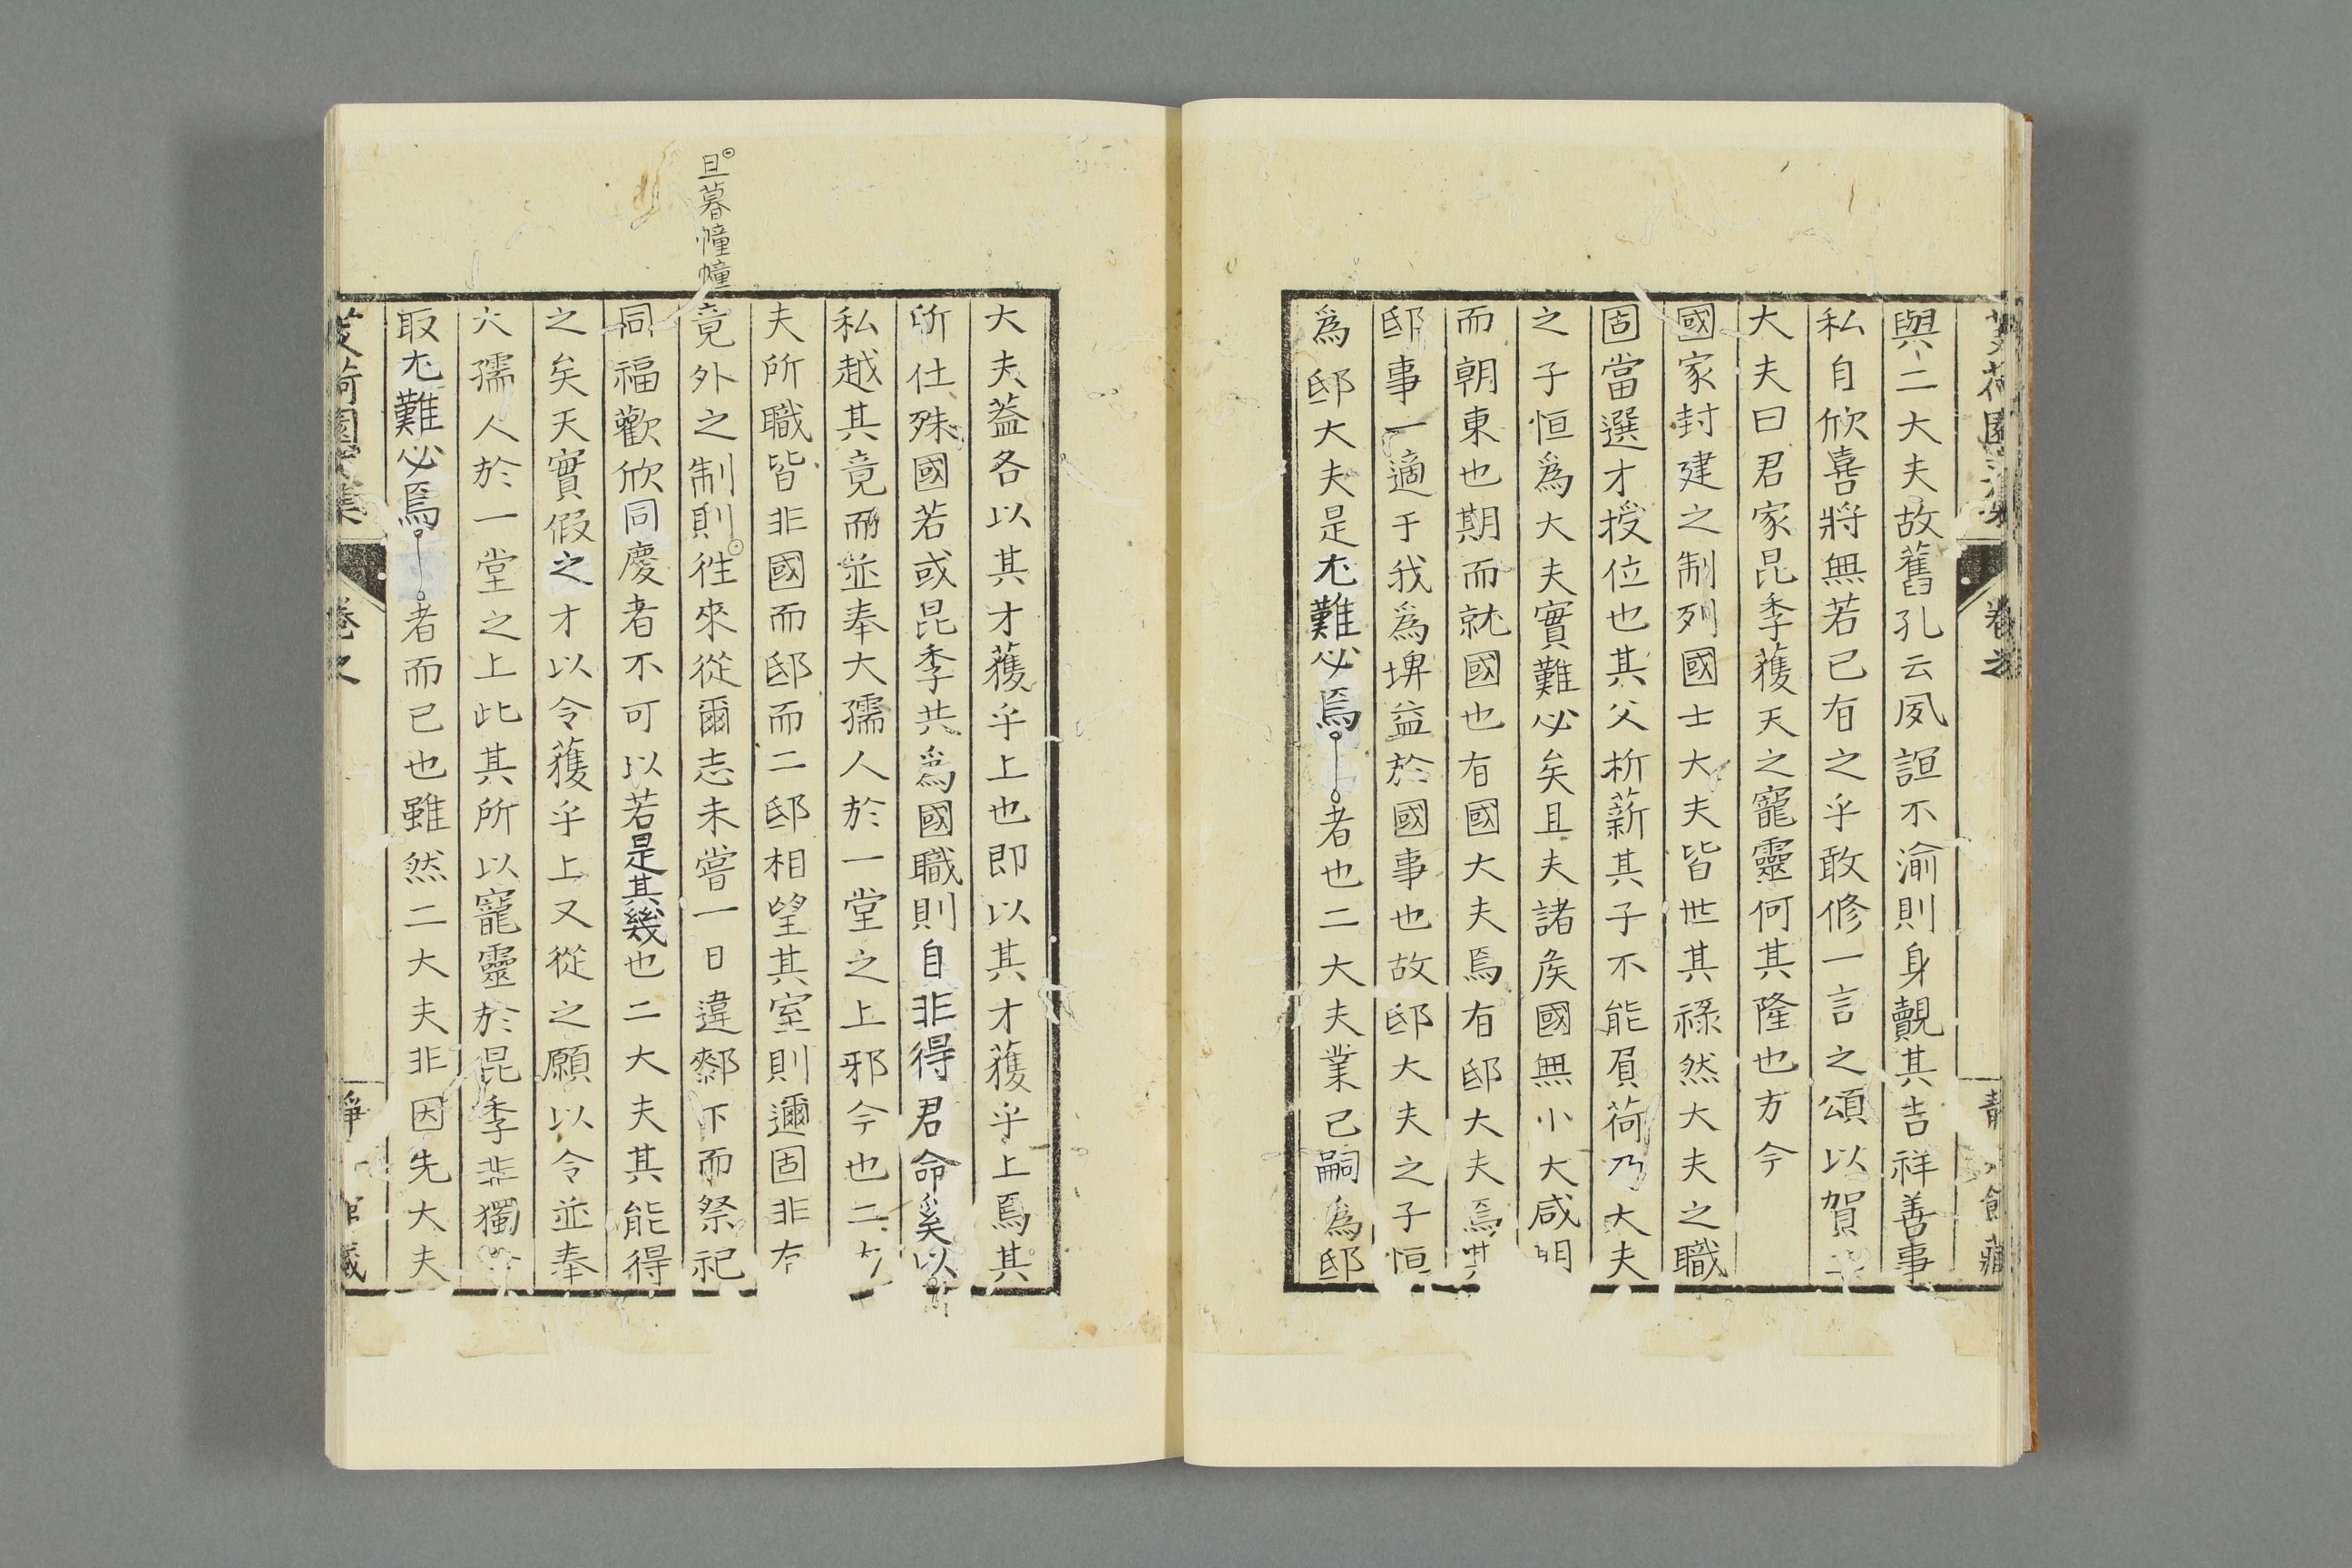 與二大夫故舊孔云夙誼不渝則身覿其吉祥善事
私自欣喜將無若已有之乎敢修一言之頌以賀
大夫曰君家昆季獲天之寵靈何其隆也方今
國家封建之制列國士大夫皆世其祿然大夫之職
固當選才授位也其父析薪其子不能負荷乃大夫
之子恒爲大夫實難必矣且夫諸矦國無小大咸
而朝東也期而就國也有國大夫焉有邸大夫焉
邸事一適于我爲埤益於國事也故邸大夫之子恒
爲邸大夫是尤難必焉者也二大夫業已嗣爲邸
大夫葢各以其才獲乎上也即以其才獲乎上焉其
所仕殊國若或昆季共爲國職則自非得君命奚以
私越其竟而並奉大孺人於一堂之上邪今也二
夫所職皆非國而邸而二邸相望其室則邇固非有
竟外之制則徃來從爾志未嘗一日違鄰下而祭祀
旦暮幢幢
同福歡欣同慶者不可以若是其幾也二大夫其能得
之矣天實假之才以令獲乎上又從之願以令並奉
大孺人於一堂之上此其所以寵靈於昆季非獨
取尤難必焉者而已也雖然二大夫非因先大夫
卷之